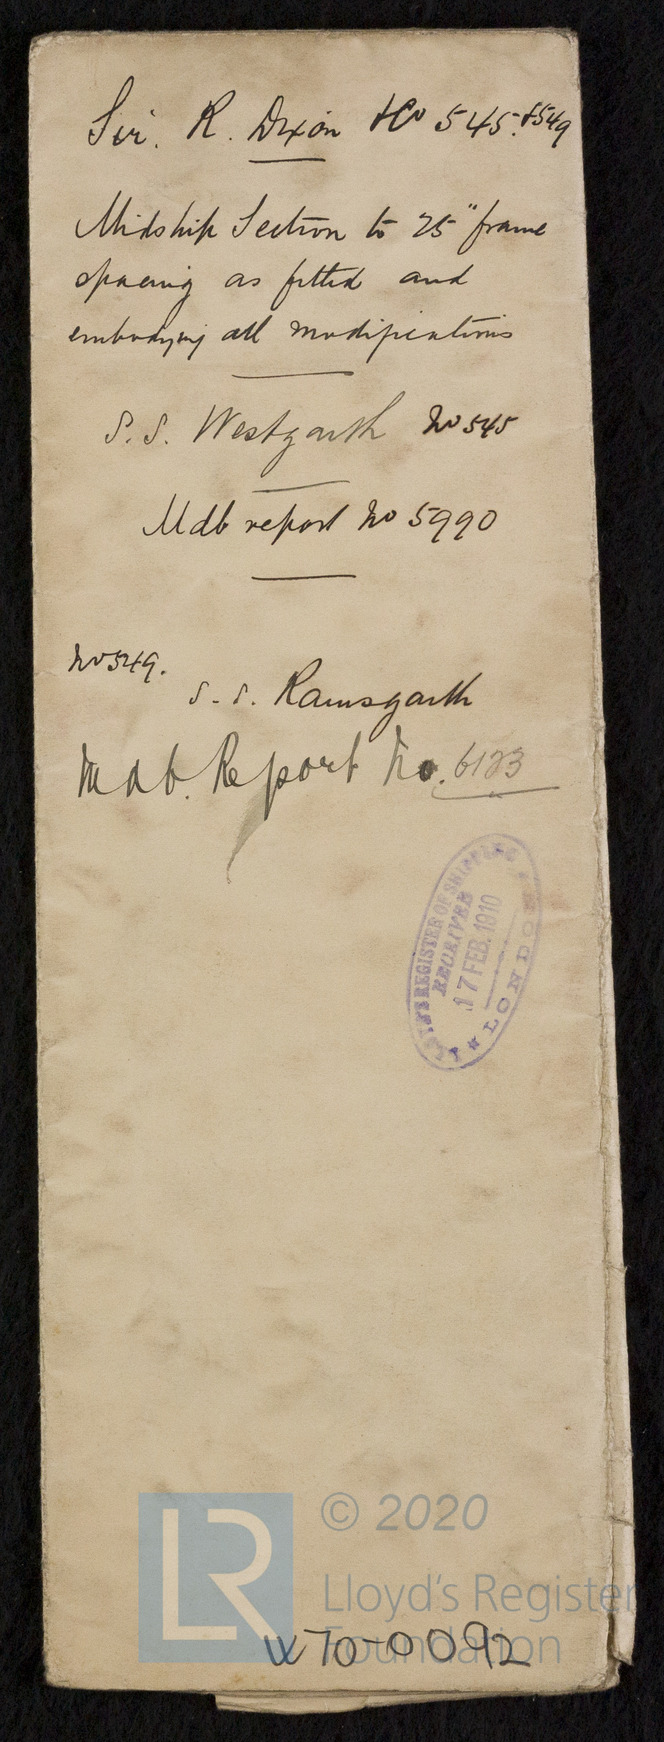 Sir. R. Dixon & Co 545. & 549
Midship Section to 25" frame
spacing as fitted and
embodying all modifications
S.S. Westgarth No 545
Mdb report No 5990
No 549.
S.S. Ramsgarth
Mdb. Report No. 6123
LLOYD'S REGISTER OF SHIPPING
RECEIVED
17 FEB. 1910
LONDON
LR
© 2020
Lloyd's Register
Foundation
W70-0092